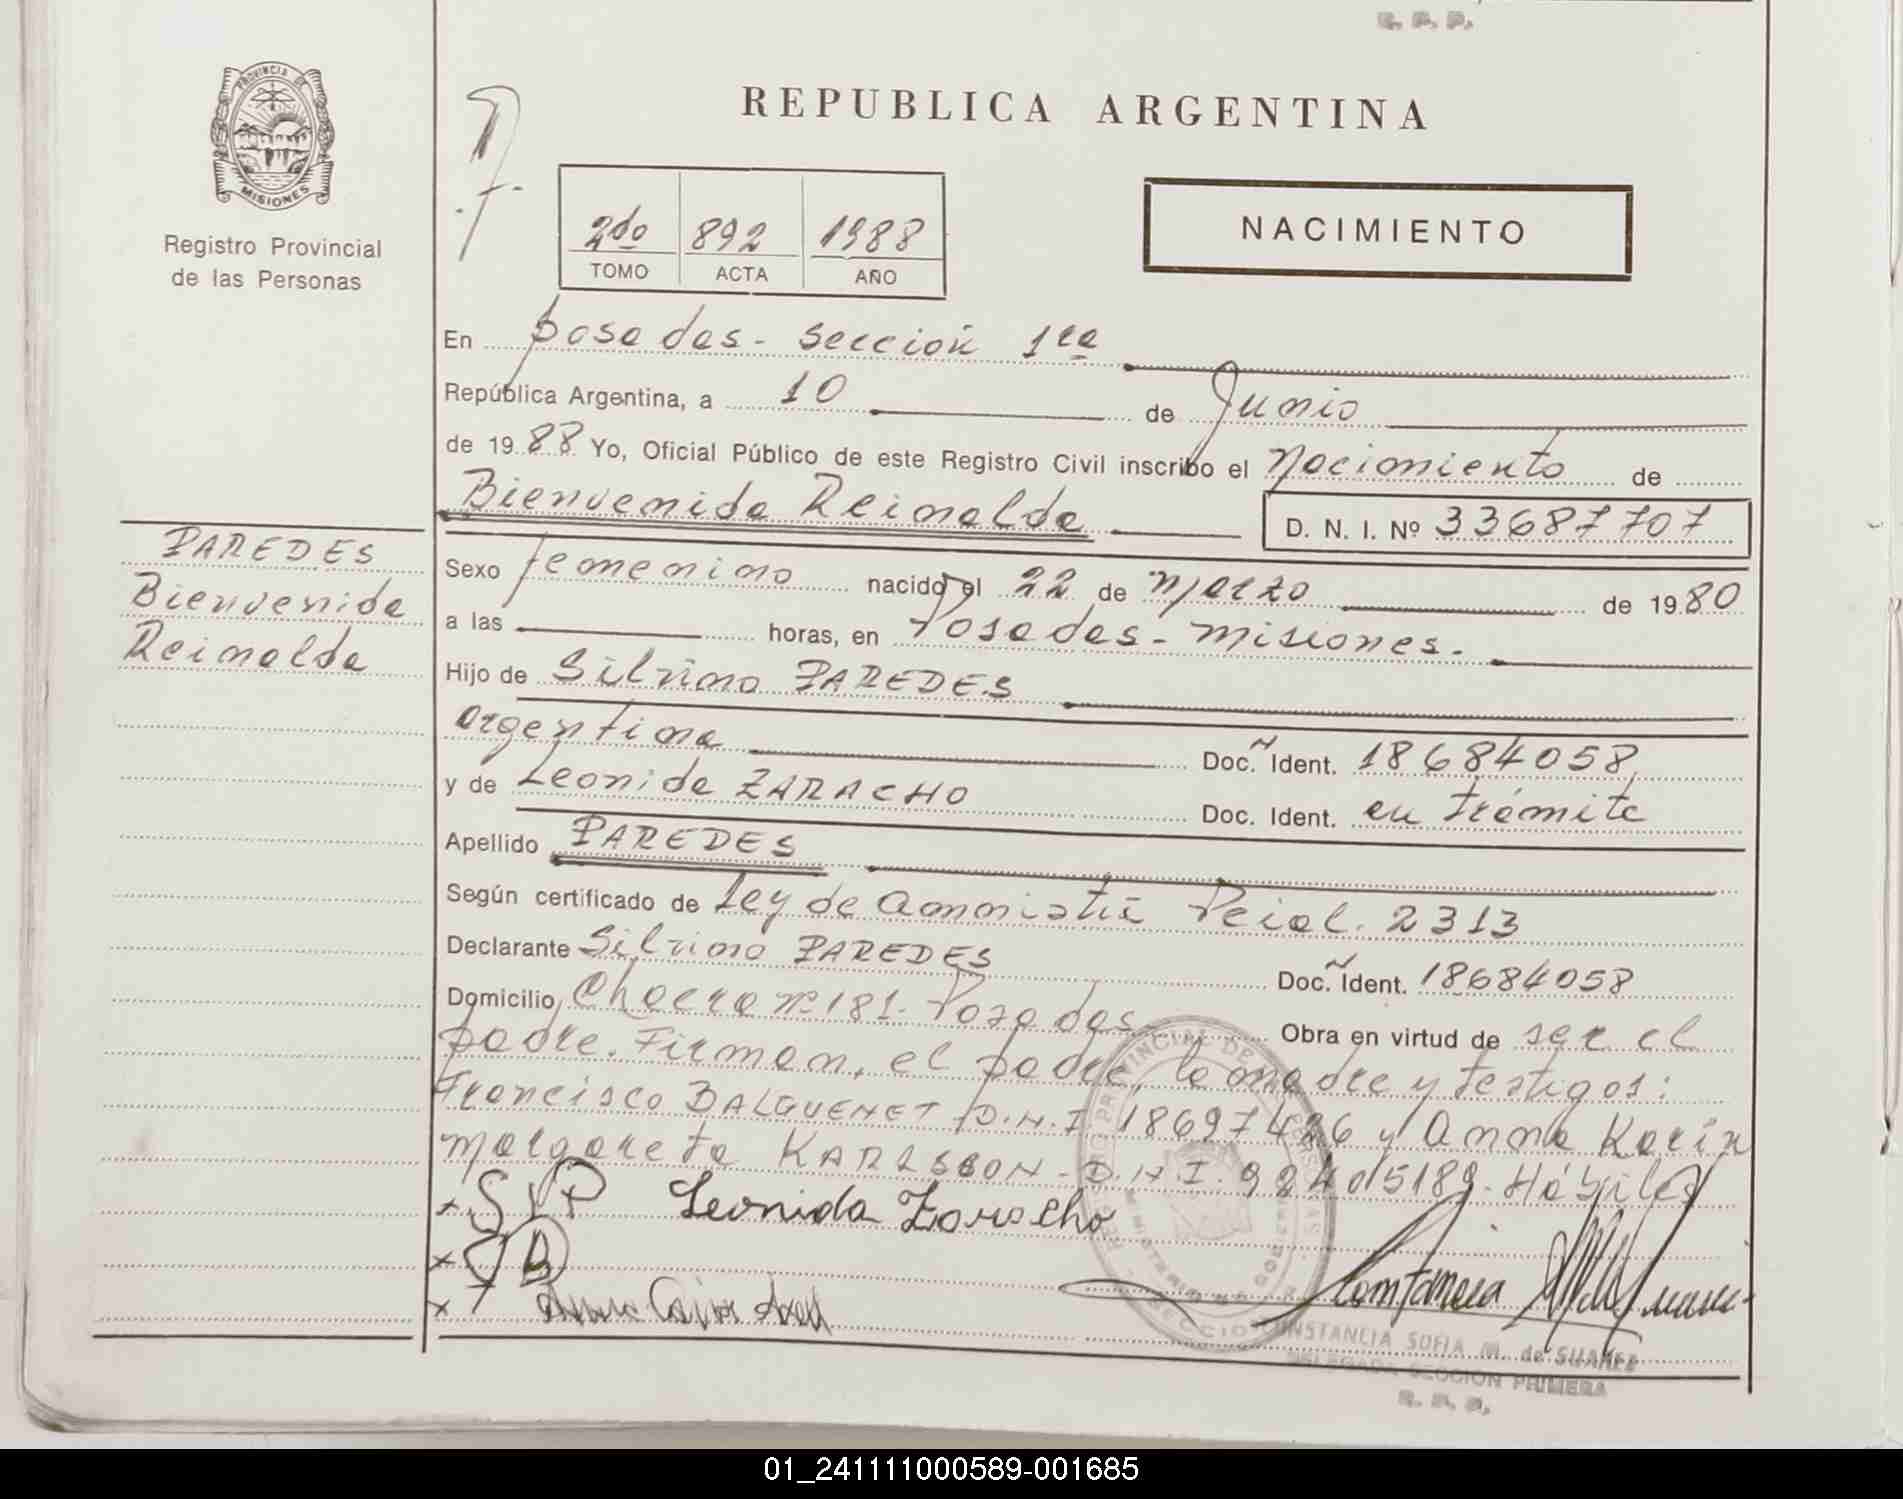 R. P. P.
PROVINCIA DE
MISIONES
Registro Provincial
de las Personas
REPUBLICA ARGENTINA
2do 892 1988
TOMO ACTA AÑO
NACIMIENTO
En posadas - sección 1ra
República Argentina, a 10 de Junio
de 19 88 Yo, Oficial Público de este Registro Civil inscribo el Nacimiento de
Bienvenida Reinalda D. N. I. Nº 33687707
PAREDES
Bienvenida
Reinalda
Sexo femenino nacido el 22 de Marzo de 19 80
a las horas, en Posadas - Misiones.
Hijo de Silvino PAREDES
argentina Doc. Ident. 18684058
y de Leonida ZARACHO Doc. Ident. en trámite
Apellido PAREDES
Según certificado de Ley de Amnistía Pcial. 2313
Declarante Silvino PAREDES Doc. Ident. 18684058
Domicilio Chacra nº 181 - Posadas Obra en virtud de ser el
padre. Firman, el padre, la madre y testigos:
Francisco BALGUENET D.N.I 18697426 y Anna Karin
Margareta KARLSSON - D.N.I. 92405189 - Hábiles
x S V P Leonida Zaracho
x
x
Constancia
CONSTANCIA SOFIA M. de SUAREZ
DELEGADA SECCION PRIMERA
R. P. P.
01_241111000589-001685